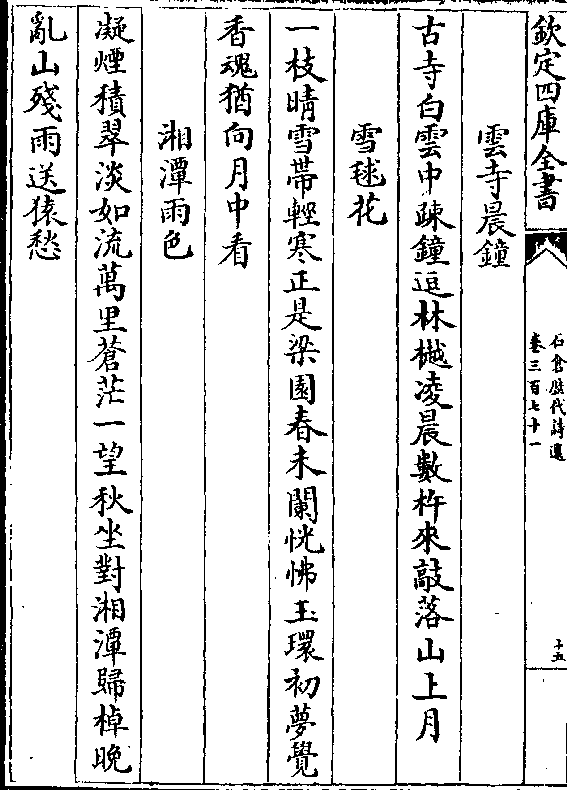 欽定四庫全書
石倉歷代詩選
卷三百七十一
十五
雲寺晨鐘
古寺白雲中疎鐘逗林樾凌晨數杵來敲落山上月
雪毬花
一枝晴雪帶輕寒正是梁園春未闌恍怫玉環初夢覺
香魂猶向月中看
湘潭雨色
凝煙積翠淡如流萬里蒼茫一望秋坐對湘潭歸棹晚
亂山殘雨送猿愁